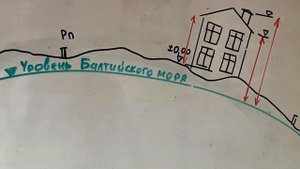 Рп
±0,00
Уровень Балтийского моря